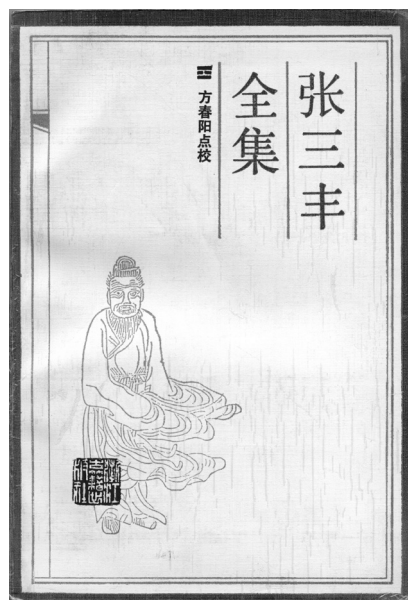 张三丰
全集
方春阳点校
浙江
古籍出
版社